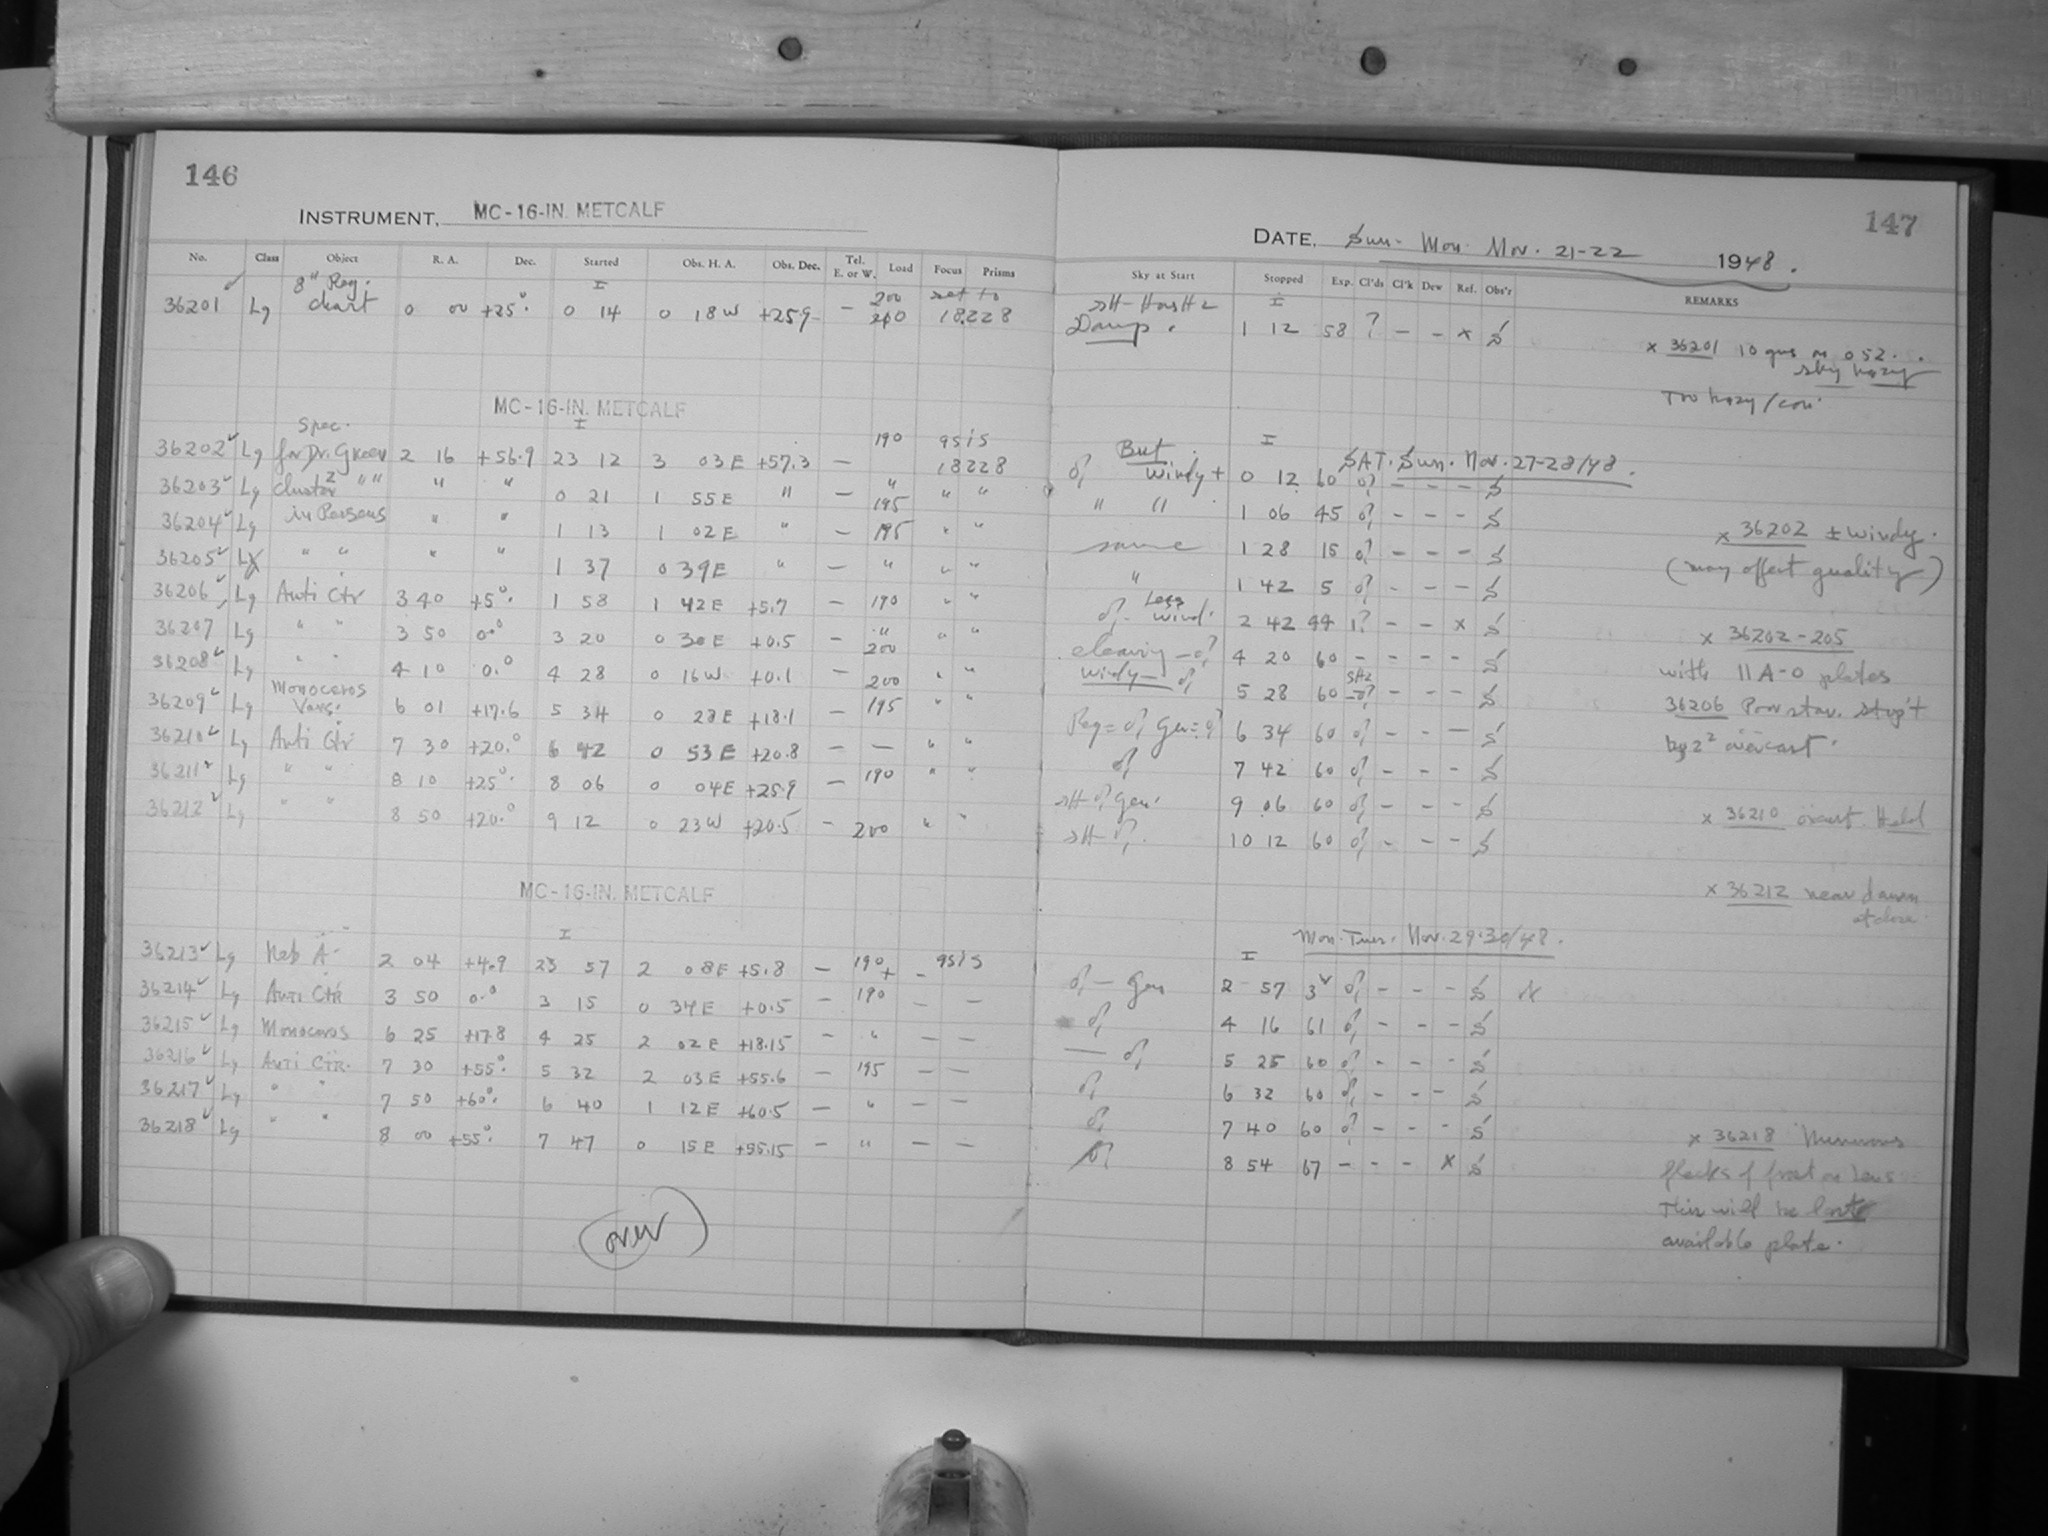 146
INSTRUMENT, MC-16-IN. METCALF
No. Class Object R. A. Dec. Started Obs. H. A. Obs. Dec. Tel. E. or W. Load Focus Prisms
8" Reg. I 200 set to
36201 Lg chart 0 00 +25° 0 14 0 18 W +25.9 — 18228
MC-16-IN. METCALF
Spec. I 190 9515
36202 Lg for Dr. 2 16 +56.9 23 12 3 03 E +57.3 — 18228
36203 Lg cluster " " " " 0 21 1 55 E " — " " "
36204 Lg in Perseus " " 1 13 1 02 E " — 195 " "
36205 " " " " 1 37 0 39 E " — " " "
36206 Lg Anti Ctr 3 40 +5° 1 58 1 42 E +5.7 — 190 " "
36207 Lg " " 3 50 0.° 3 20 0 30 E +0.5 — " " "
36208 Lg " " 4 10 0.° 4 28 0 16 W +0.1 — 200 " "
36209 Lg Monoceros Vars. 6 01 +17.6 5 34 0 28 E +18.1 — 195 " "
36210 Lg Anti Ctr 7 30 +20.° 6 42 0 53 E +20.8 — — " "
36211 Lg " " 8 10 +25° 8 06 0 04 E +25.9 — 190 " "
36212 Lg " " 8 50 +20.° 9 12 0 23 W +20.5 — 200 " "
MC-16-IN. METCALF
I
36213 Lg Neb A 2 04 +4.9 23 57 2 08 E +5.8 — 190 + — 9515
36214 Lg Anti Ctr 3 50 0.° 3 15 0 34 E +0.5 — 190 — —
36215 Lg Monoceros 6 25 +17.8 4 25 2 02 E +18.15 — " — —
36216 Lg Anti Ctr. 7 30 +55° 5 32 2 03 E +55.6 — 195 — —
36217 Lg " " 7 50 +60° 6 40 1 12 E +60.5 — " — —
36218 Lg " " 8 00 +55° 7 47 0 15 E +55.15 — " — —
over
147
DATE, Sun- Mon. Nov. 21-22 1948.
Sky at Start Stopped Exp. Cl'ds Cl'k Dew Ref. Obs'r REMARKS
I
Damp. 1 12 58 ? — — x
x 36201 10 052.
sky hazy
Too hazy/
But I SAT. Sun. Nov. 27-28/48.
windy + 0 12 60 — — —
" " 1 06 45 — — —
same 1 28 15 — — —
" 1 42 5 — — —
Less wind. 2 42 44 1? — — x
clearing — 4 20 60 — — — —
windy — 5 28 60 — — —
6 34 60 — — —
7 42 60 — — —
Gen. 9 06 60 — — —
10 12 60 — — —
x 36202 ± windy.
(may affect quality)
x 36202-205
with II A-O plates
36206 Poor star. stop't
by overcast.
x 36210
x 36212 near dawn
at close.
Mon. Tues. Nov. 29-30/48.
I
— Gen 2 57 — — —
4 16 61 — — —
5 25 60 — — —
6 32 60 — — —
7 40 60 — — —
8 54 67 — — — x
x 36218 Numerous
flecks of frost on lens
This will be last
available plate.